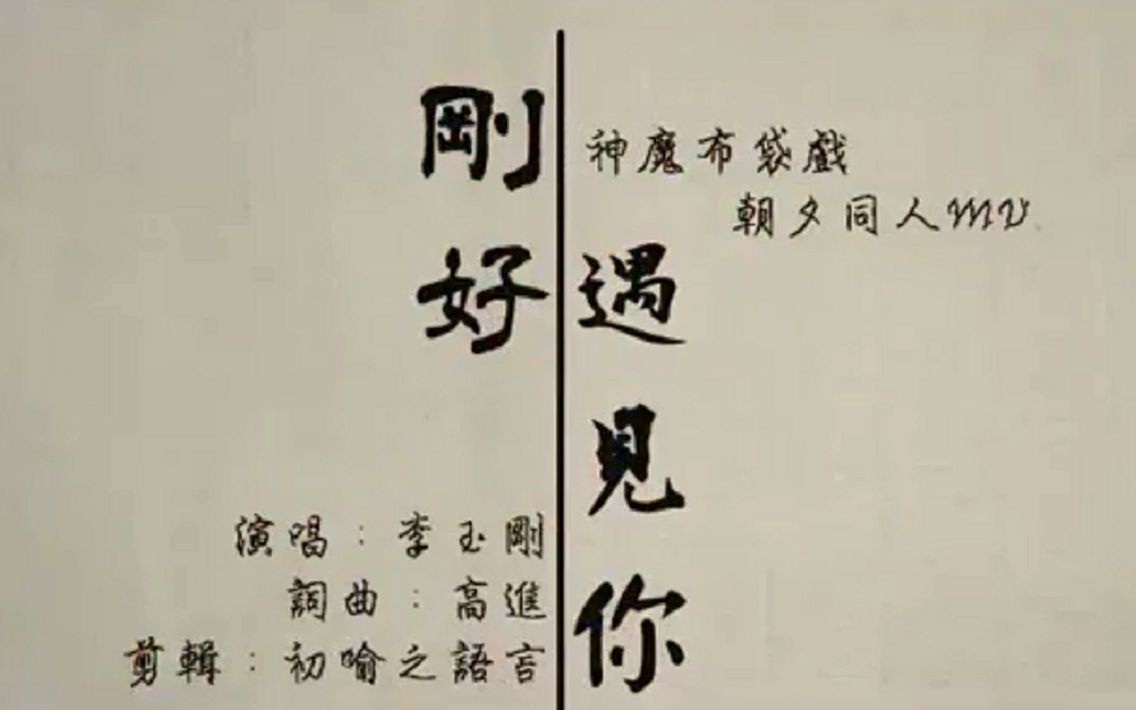 剛好
遇見你
神魔布袋戲
朝夕同人MV
演唱：李玉剛
詞曲：高進
剪輯：初喻之語言